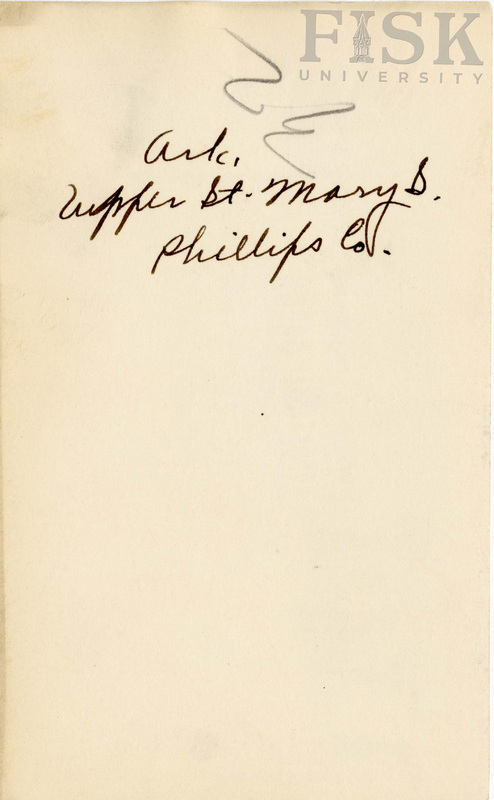 FISK
UNIVERSITY
Ark.
Upper St. Mary S.
Phillips Co.